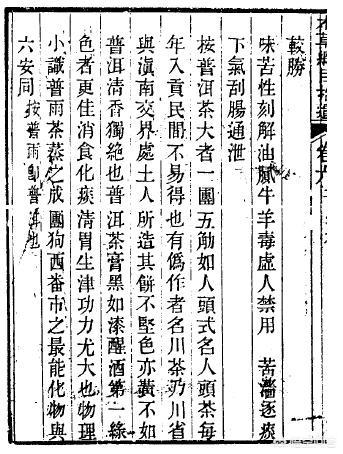 本草綱目拾遺
較勝
味苦性刻解油膩牛羊毒虛人禁用　苦濇逐痰
下氣刮腸通泄
按普洱茶大者一團五觔如人頭式名人頭茶每
年入貢民間不易得也有偽作者名川茶乃川省
與滇南交界處土人所造其餅不堅色亦黃不如
普洱清香獨絕也普洱茶膏黑如漆醒酒第一綠
色者更佳消食化痰清胃生津功力尤大也物理
小識普雨茶蒸之成團狗西番市之最能化物與
六安同　按普雨即普洱也